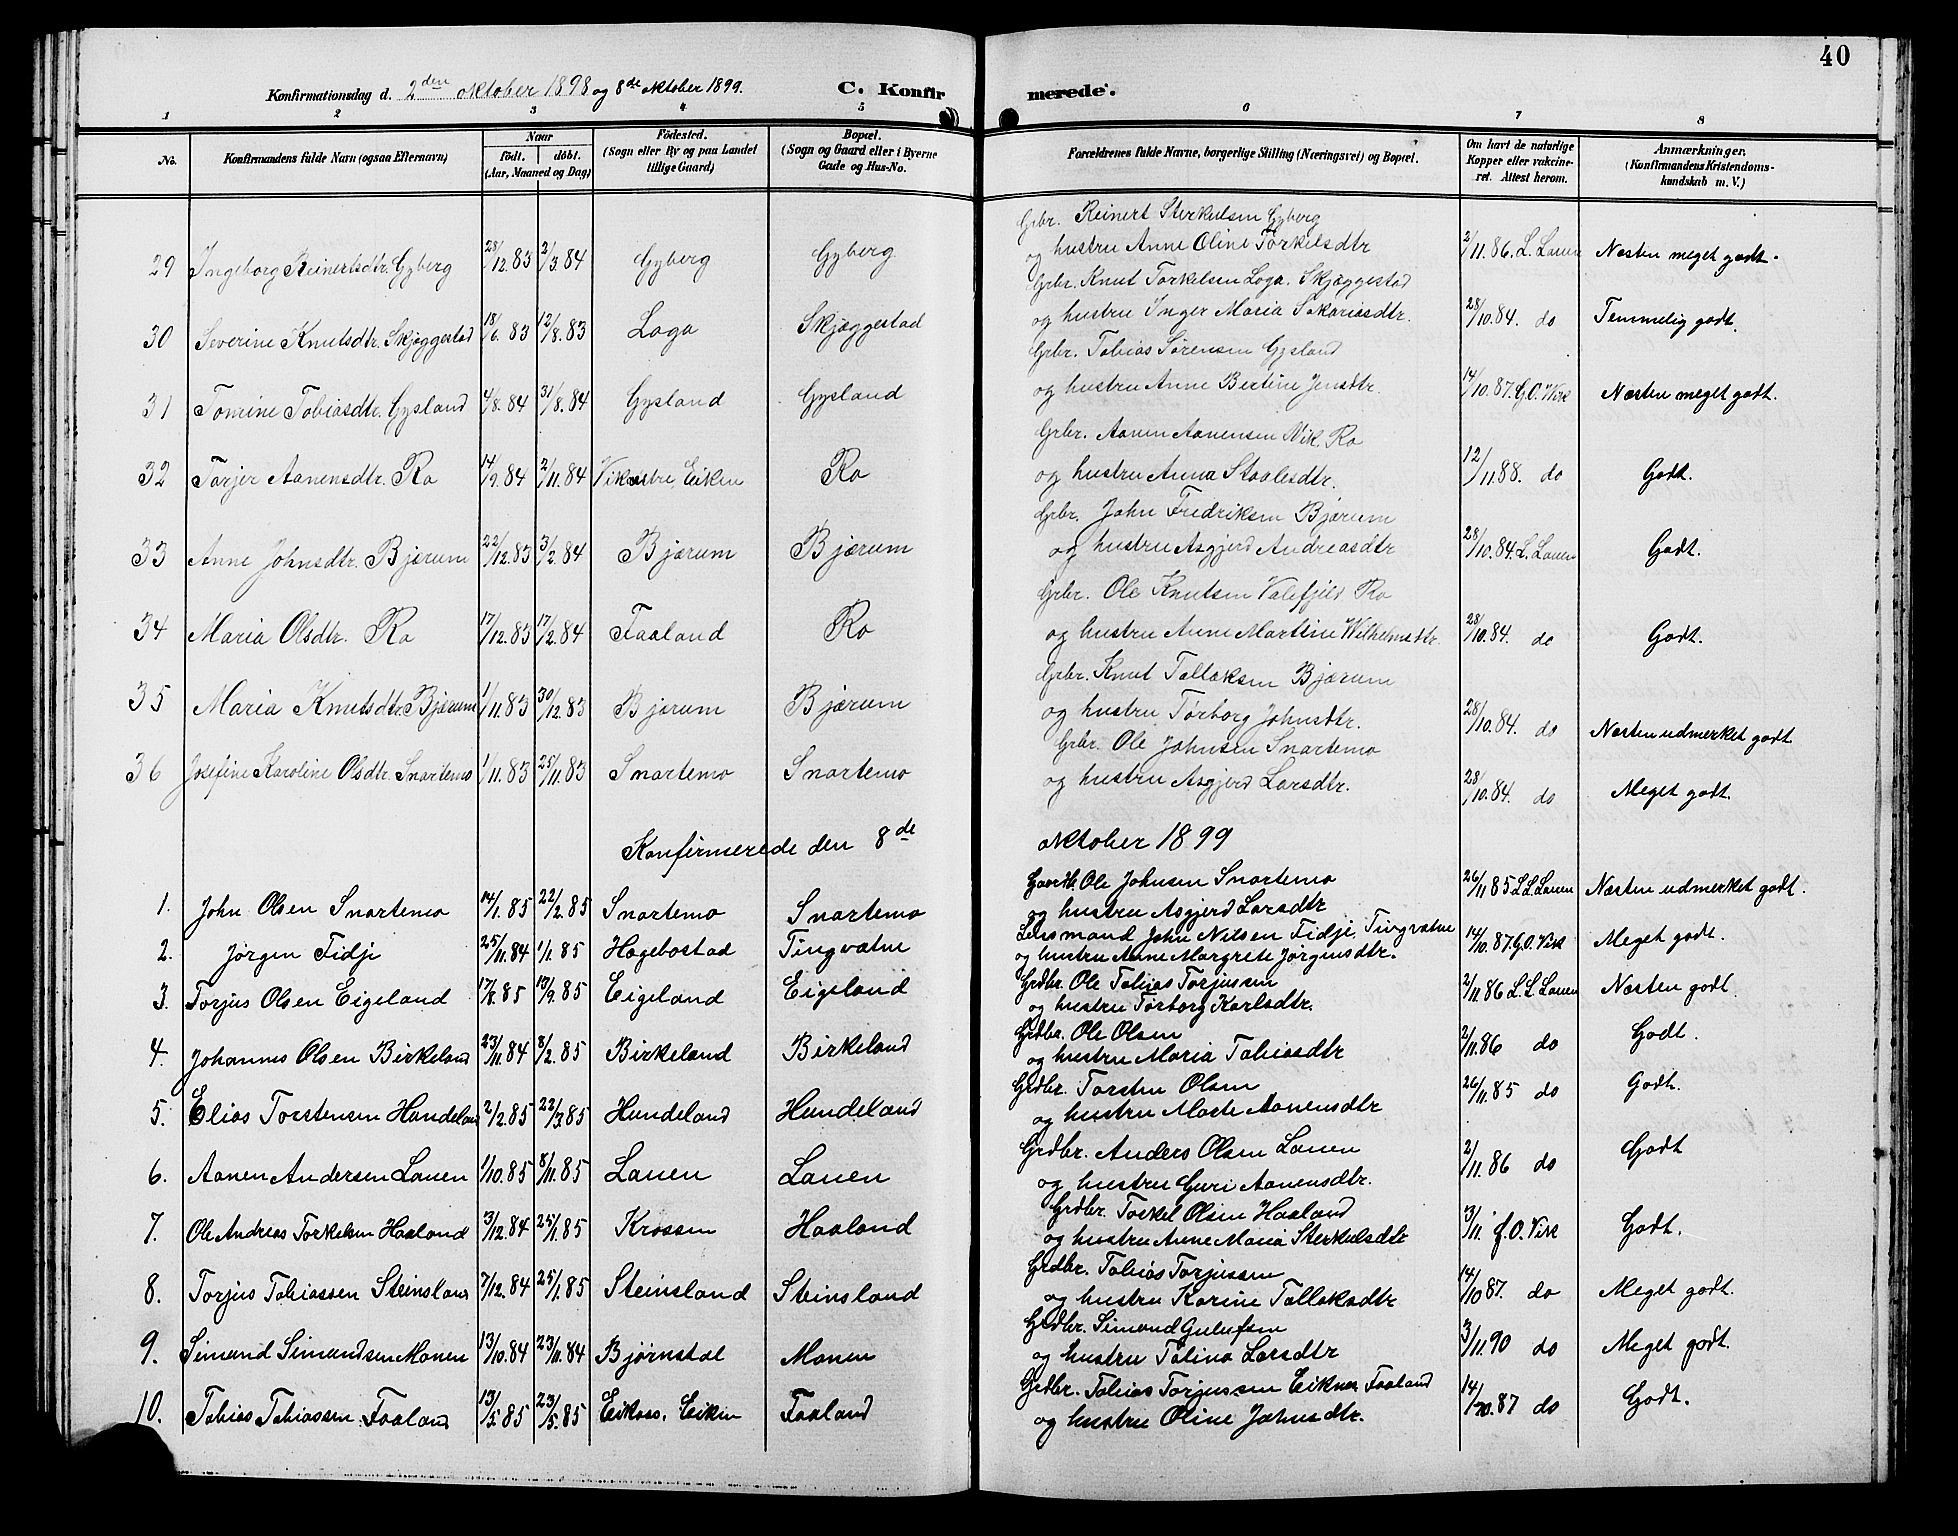 40
Konfirmationsdag d. 2den oktober 1898 og 8de oktober 1899.
C. Konfirmerede.
1 2 3 4 5 6 7 8
No. | Konfirmandens fulde Navn (ogsaa Efternavn) | Naar födt. döbt. (Aar, Maaned og Dag) | Födested. (Sogn eller By og paa Landet tillige Gaard) | Bopæl. (Sogn og Gaard eller i Byerne Gade og Hus-No. | Forældrenes fulde Navne, borgerlige Stilling (Næringsvei) og Bopæl. | Om havt de naturlige Kopper eller vakcineret. Attest herom. | Anmærkninger. (Konfirmandens Kristendomskundskab m. V.)
29 Ingeborg Reinertsdtr. Gyberg 28/12.83 2/3.84 Gyberg Gyberg Grbr. Reinert Sterkelsen Gyberg
og hustru Anne Oline Torkelsdtr 2/11.86. L. Lauen Næsten meget godt.
30 Severine Knutsdtr. Skjæggestad 18/6.83 12/8.83 Loga Skjæggestad Grbr. Knut Torkelsen Loga. Skjæggestad
og hustru Inger Maria Sakariasdtr. 28/10.84. do Temmelig godt.
31 Tomine Tobiasdtr. Gysland 4/8.84 31/8.84 Gysland Gysland Grbr. Tobias Sørensen Gysland
og hustru Anne Bertine Jensdtr 14/10.87. G.O. Virk Næsten meget godt.
32 Torjer Aanensdtr. Ro 14/9.84 2/11.84 Vik Eiken Ro Grbr. Aanen Aanensen Vik. Ro
og hustru Anna Staalesdtr. 12/11.88. do Godt.
33 Anne Johnsdtr. Bjærum 22/12.83 3/2.84 Bjærum Bjærum Grbr. John Fredriksen Bjærum
og hustru Asgjerd Andreasdtr 28/10.84. L. Lauen Godt.
34 Maria Olsdtr. Ro 17/12.83 17/2.84 Faaland Ro Grbr. Ole Knutsen Ro
og hustru Anne Martine Wilhelmsdtr. 28/10.84. do Godt.
35 Maria Knutsdtr. Bjærum 1/11.83 30/12.83 Bjærum Bjærum Grbr. Knut Tallaksen Bjærum
og hustru Tørborg Johnsdtr. 28/10.84. do Næsten udmerket godt
36 Josefine Karoline Olsdtr. Snartemo 1/11.83 25/11.83 Snartemo Snartemo Grbr. Ole Johnsen Snartemo
og hustru Asgjerd Larsdtr. 28/10.84. do Meget godt.
Konfirmerede den 8de oktober 1899
1. John Olsen Snartemo 14/1.85 22/2.85 Snartemo Snartemo Ole Johnsen Snartemo
og hustru Asgjerd Larsdtr 26/11 85 L.L. Lauen Næsten udmerket godt.
2. Jørgen Fidje 25/11.84 1/1.85 Hægebostad Tingvatne Lensmand John Nilsen Fidje, Tingvatne
og hustru Anne Margrete Jørgensdtr. 14/10.87. G.O. Virk Meget godt.
3. Torjus Olsen Eigeland 17/8.85 13/9.85 Eigeland Eigeland Grdbr. Ole Tobias Torjussen
og hustru Tørborg Karlsdtr. 2/11.86 L.L. Lauen Næsten godt
4. Johannes Olsen Birkeland 23/11.84 8/2.85 Birkeland Birkeland Grdbr. Ole Olsen
og hustru Maria Tobiasdtr 2/11.86 do Godt.
5. Elias Torstensen Hundeland 2/2.85 22/3.85 Hundeland Hundeland Grdbr. Torsten Olsen
og hustru Marte Aanensdtr 26/11.85 do Godt.
6. Aanen Andersen Lauen 1/10.85 8/11.85 Lauen Lauen Grdbr. Anders Olsen Lauen
og hustru Guri Aanensdtr. 2/11.86 do Godt
7. Ole Andreas Torkelsen Haaland 3/12.84 25/1.85 Krossen Haaland Grdbr. Torkel Olsen Haaland
og hustru Anne Maria Sterkelsdtr 3/11. G.O. Virk Godt.
8. Torjus Tobiassen Steinsland 7/12.84 25/1.85 Steinsland Steinsland Grdbr. Tobias Torjussen
og hustru Karine Tallaksdtr 14/10 87. do Meget godt.
9. Simund Simundsen Monen 13/10.84 23/11.84 Bjørnstøl Monen Grdbr. Simond Gulufsen
og hustru Taline Larsdtr 3/11.90 do Meget godt.
10. Tobias Tobiassen Faaland 13/5.85 23/5.85 Eikaas, Eiken Faaland Grdbr. Tobias Torjussen Faaland
og hustru Oline Jahnsdtr. 14/10.87 do Godt.